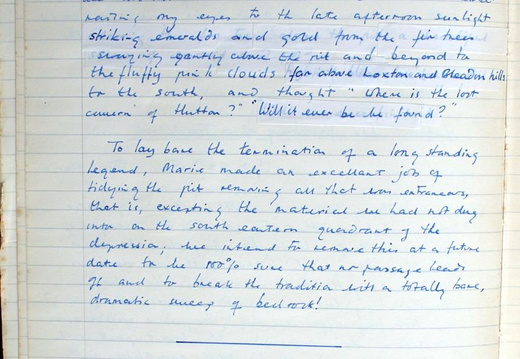 raising my eyes to the late afternoon sunlight
striking emeralds and gold from the fir trees
swinging gently above the pit and beyond to
the fluffy pink clouds far above Loxton and Bleadon hills
to the south, and thought "Where is the lost
cavern of Hutton?" "Will it ever be found?"
To lay bare the termination of a long standing
legend, Marie made an excellent job of
tidying the pit removing all that was extraneous,
that is, excepting the material we had not dug
into on the south eastern quadrant of the
depression; we intend to remove this at a future
date to be 100% sure that no passage leads
off and to break the tradition with a totally bare,
dramatic sweep of bedrock!